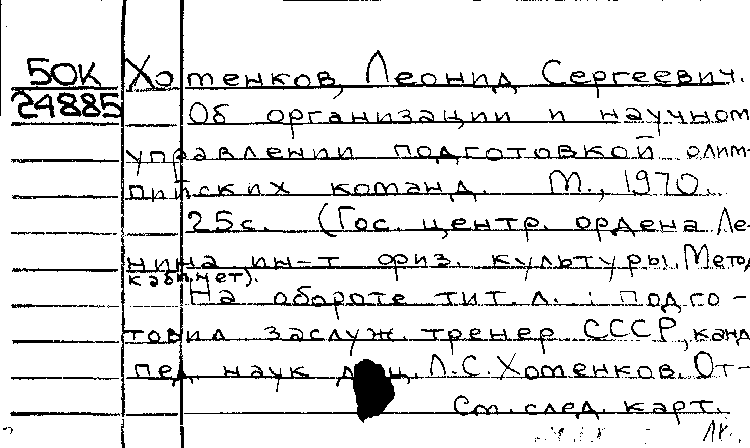 50К Хотенков, Леонид Сергеевич.
24885 Об организации и научном
управлении подготовкой олим-
пийских команд. М., 1970.
25с. (Гос. центр. ордена Ле-
нина ин-т физ. культуры. Метод.
кабинет).
На обороте тит. л. : подго-
товил заслуж. тренер СССР, канд
пед. наук доц. Л.С. Хотенков. От-
См. след. карт.